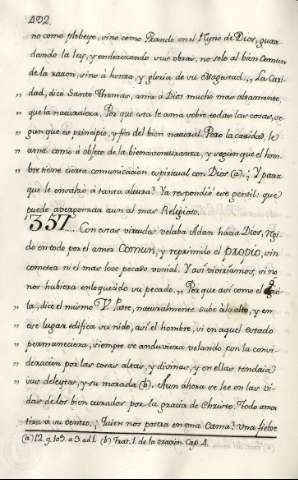 402.
no como plebeyo, sino como Grande en el Reyno de Dios, guar-
dando la ley, y enderezando sus obras, no solo al bien Comun
de la razon, sino à honra, y gloria de su Magestad. „ La Cari-
„ dad, dice Santo Thomas, ama à Dios mucho mas altamente,
„ que la naturaleza. Por que esta le ama sobre todas las cosas, se-
„ gun que es principio, y fin del bien natural. Pero la caridad, le
„ ama como à objeto de la bienaventuranza, y segun que el hom-
„ bre tiene cierta comunicacion espiritual con Dios (a). ¿Y para
que le ensalzò à tanta altura? Ya respondiò este gentil: que
puede avergonzar aun al mas Religioso.
357. Con estas virtudes volaba Adan hacia Dios, regi-
do en todo por el amor COMUN, y reprimido el PROPIO, sin
cometer ni el mas leve pecado venial. Y asi vivieramos, si no
nos hubiera enloquecido su pecado. „ Por que asi como el Agui-
„ la, dice el mismo V. Padre, naturalmente sube à lo alto, y en
„ este lugar edifica su nido, asi el hombre, si en aquel estado
„ permaneciera, siempre se anduviera volando con la consi-
„ deracion por las cosas altas, y divinas, y en ellas tendria
„ sus deleytes, y su morada (b). Aun ahora se lee en las vi-
das de los bien curados por la gracia de Christo. Todo amor
tira à su centro. ¿Quien nos postra en una Cama? Una fiebre
(a) 1.2. q. 109. a. 3. ad 1. (b) Trat. 1. de la oracion Cap. 4.